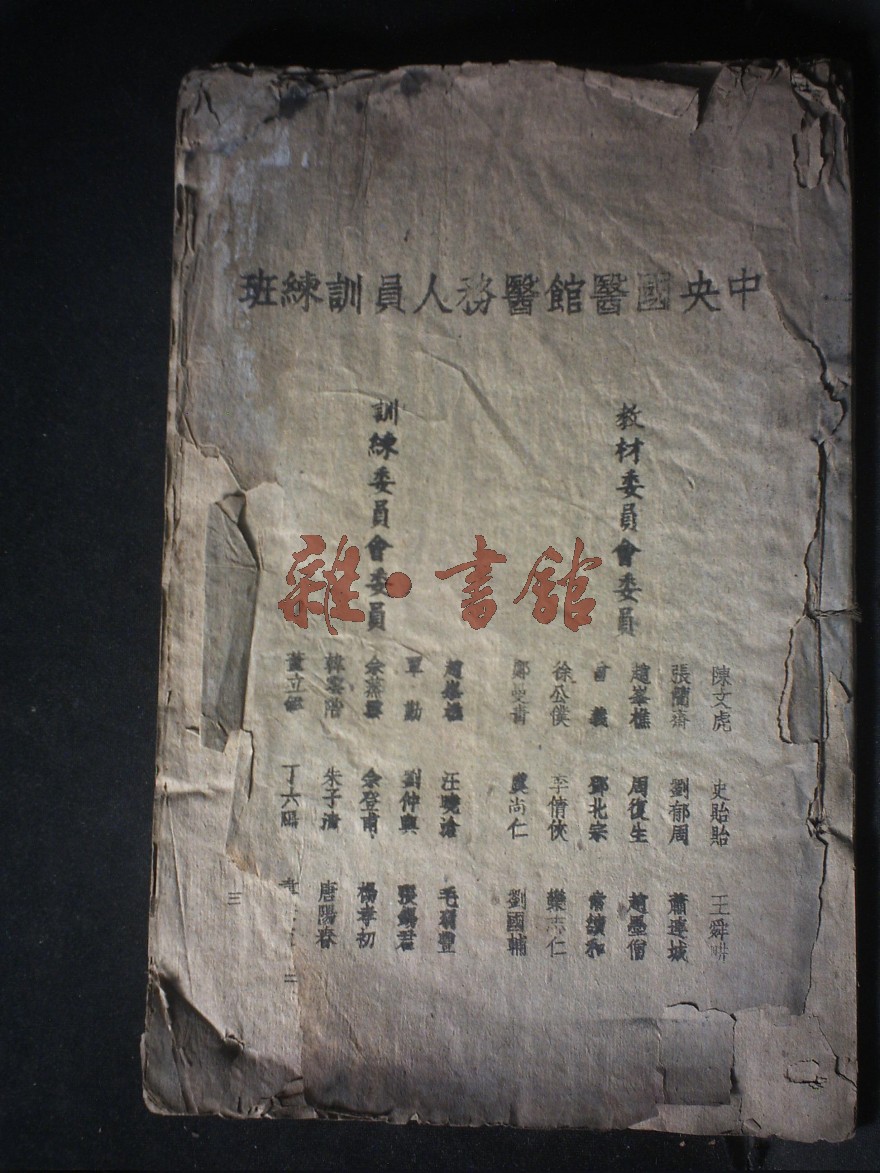 中央國醫館醫務人員訓練班
教材委員會委員
陳文虎 史貽貽 王舜
張簡齋 劉郁周 蕭連城
趙峯樵 周復生 趙墨僧
曾義 鄧北宗 常頌和
徐公僕 李倩俠 欒志仁
鄭 虞尚仁 劉國輔
訓練委員會委員
趙峯樵 汪曉滄 毛
單勤 劉仲輿 張錫君
余 余登甫 楊孝初
韓雲階 朱子清 唐陽春
董立 丁六陽
三
雜·書館